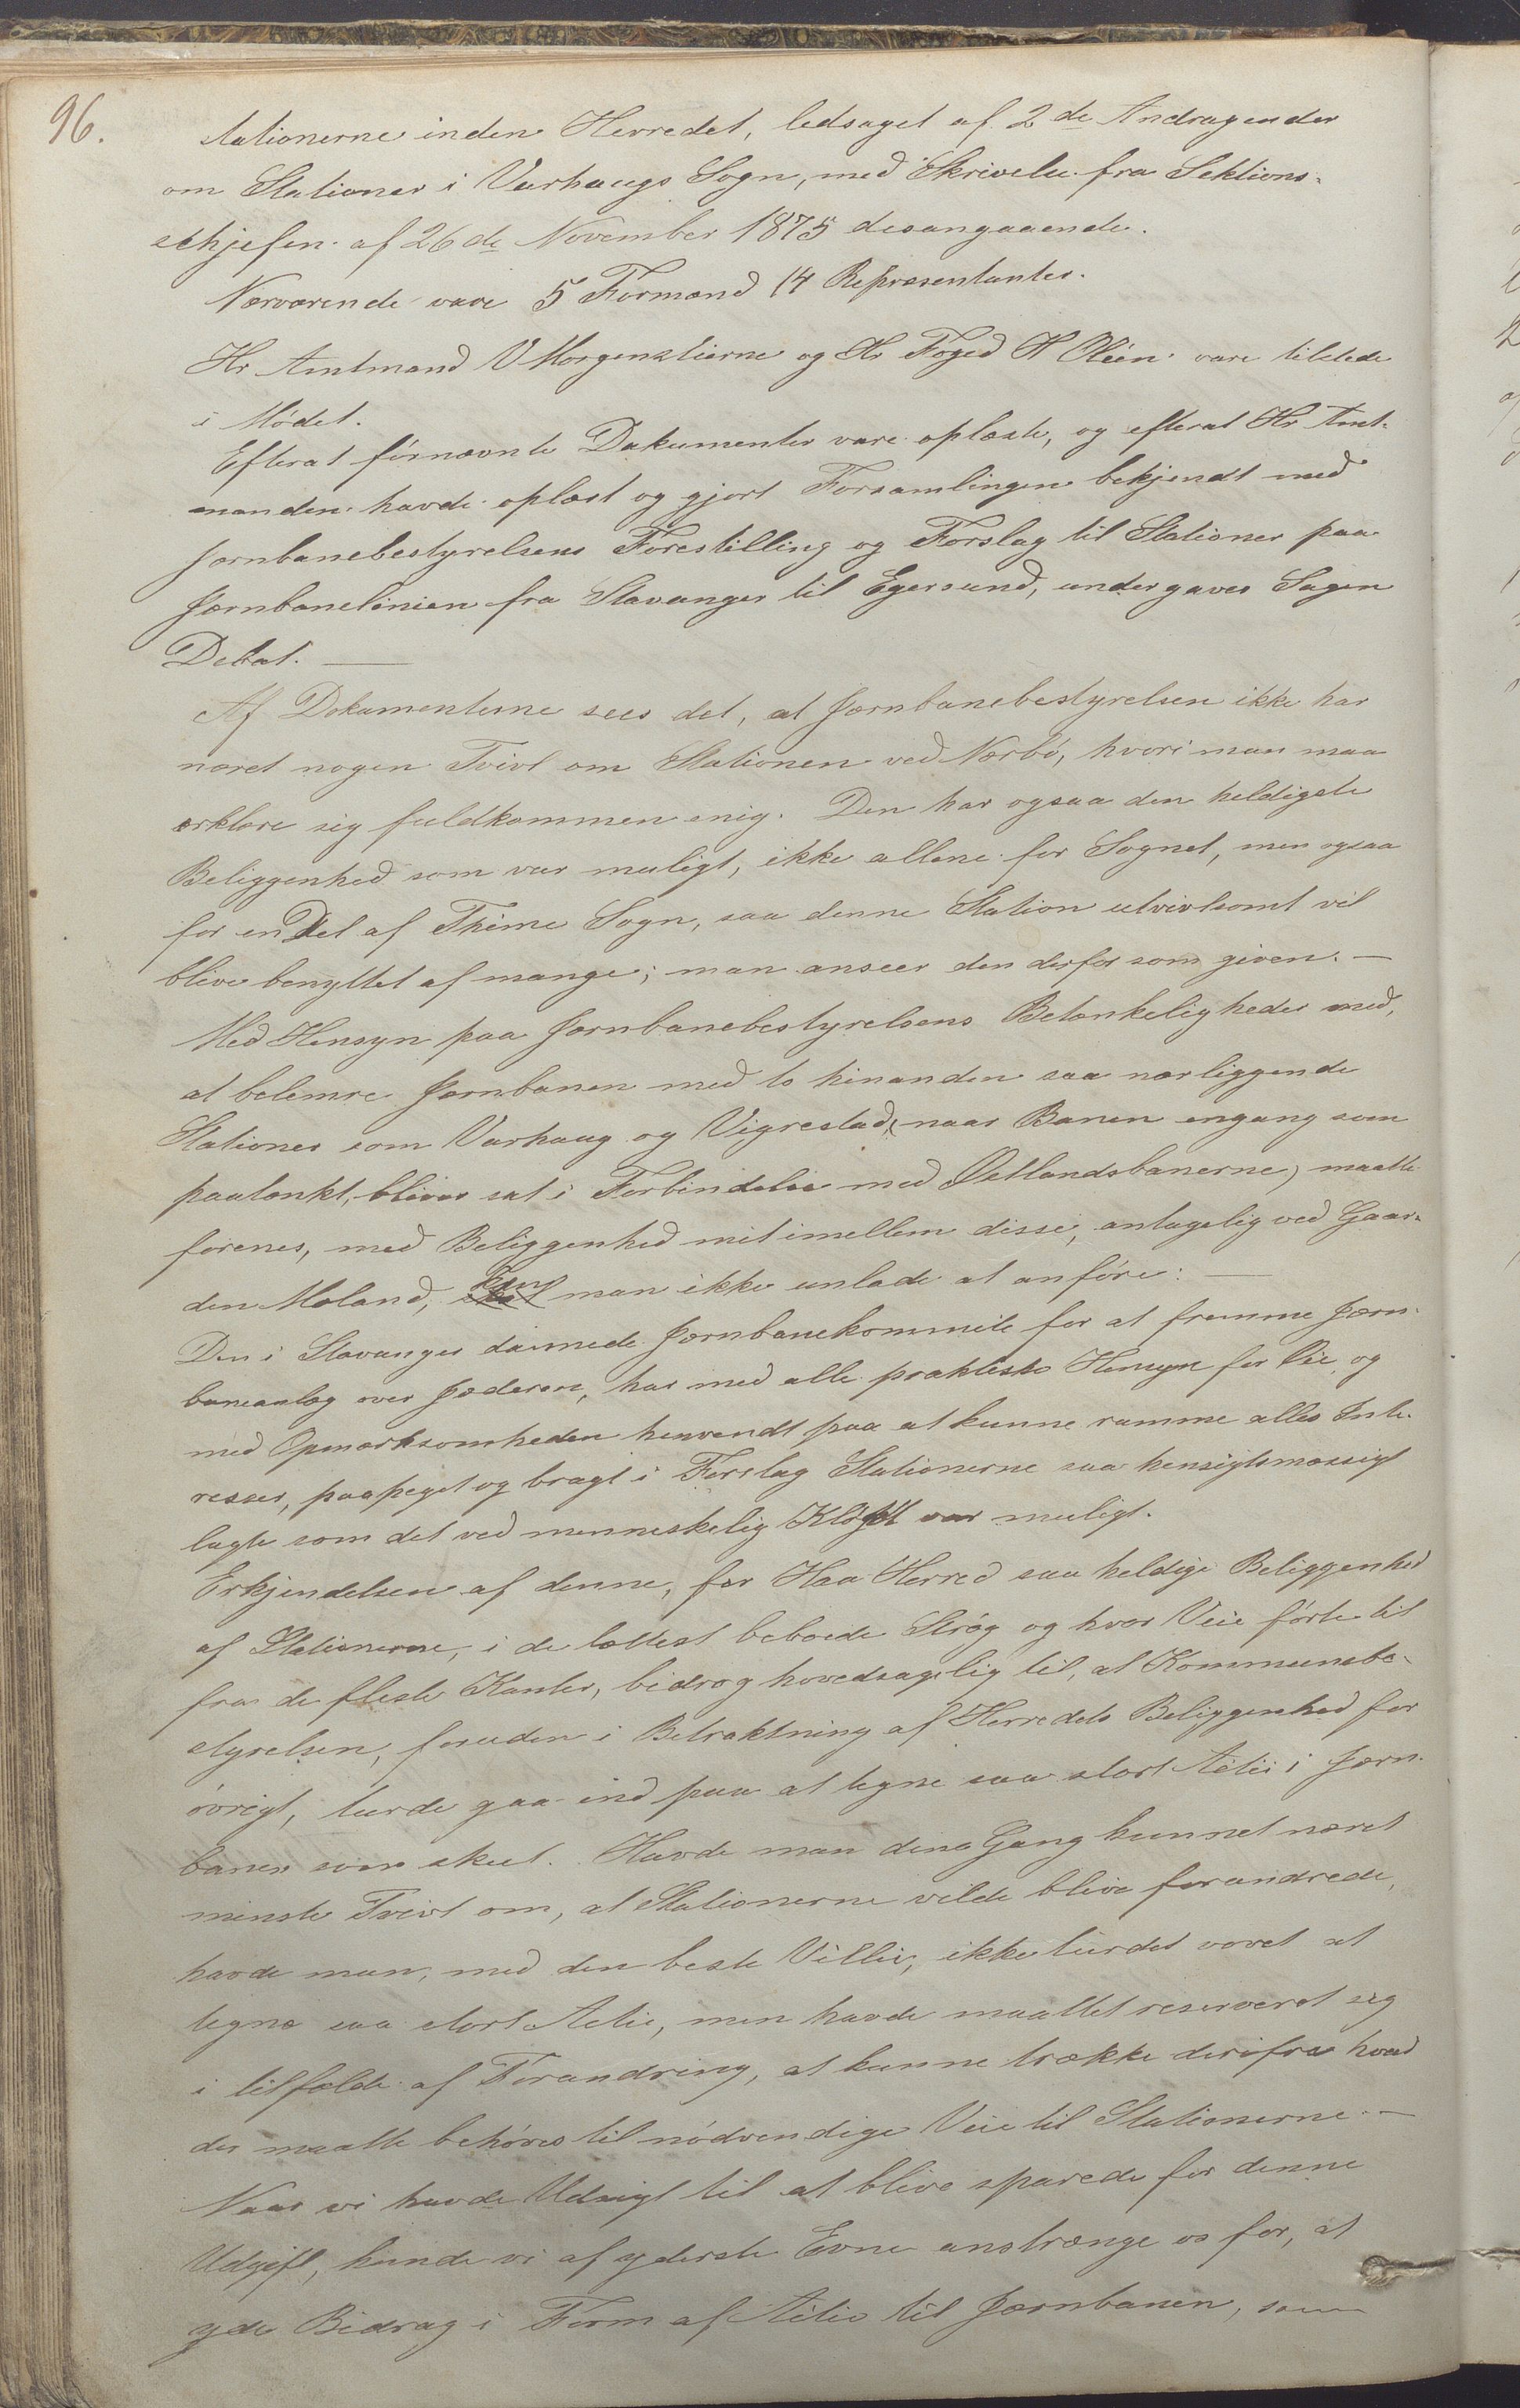 96.
stationerne inden Herredet, ledsaget af 2de Andragender
om Stationer i Varhaugs Sogn, med Skrivelse fra Sektions-
schjefen af 26de November 1875 desangaaende.
Nærværende vare 5 Formænd 14 Repræsentanter.
Hr Amtmand V Morgenstierne og Hr Foged H Oléen vare tilstede
i Mødet.
Efterat førnævnte Dokumenter vare oplæste, og efterat Hr Amt-
manden havde oplæst og gjort Forsamlingen bekjendt med
Jernbanebestyrelsens Forestilling og Forslag til Stationer paa
Jernbanelinien fra Stavanger til Egersund, undergaves Sagen
Debat. —
Af Dokumenterne sees det, at Jernbanebestyrelsen ikke har
næret nogen Tvivl om Stationen ved Nærbø, hvori man maa
erklære sig fuldkommen enig. Den har ogsaa den heldigste
Beliggenhed som var muligt, ikke allene for Sognet, men ogsaa
for en Del af Thime Sogn, saa denne Station utvivlsomt vil
blive benyttet af mange; man anseer den derfor som given. —
Med Hensyn paa Jernbanebestyrelsens Betænkeligheder med,
at belemre Jernbanen med to hinanden saa nærliggende
Stationer som Varhaug og Vigrestad, (naar Banen engang som
paatænkt, bliver sat i Forbindelse med Østlandsbanerne) maatte
forenes, med Beliggenhed mit imellem disse, antagelig ved Gaar-
den Mæland, kan man ikke unlade at anføre: —
Den i Stavanger dannede Jernbanekommite for at fremme Jern-
baneanlæg over Jæderen, har med alle praktiske Hensyn for Øie, og
med Opmærksomheden henvendt paa at kunne ramme alles Inte-
resser, paapeget og bragt i Forslag Stationerne saa hensigtsmæssigt
lagte som det ved menneskelig Kløgt var muligt.
Erkjendelsen af denne, for Haa Herred saa heldige Beliggenhed
af Stationerne, i de tættest beboede Strøg og hvor Veie førte til
fra de fleste Kanter, bidrog hovedsagelig til, at Kommunebe-
styrelsen, foruden i Betraktning af Herredets Beliggenhed for
øvrigt, turde gaa ind paa at tegne saa stort Actie i Jern-
banen som skeet. Havde man den Gang kunnet næret
minste Tvivl om, at Stationerne vilde blive forandrede,
havde man, med den beste Villie, ikke turdet vovet at
tegne saa stort Actie, men havde maattet reserveret sig
i tilfælde af Forandring, at kunne trække derifra hvad
der maatte behøves til nødvendige Veie til Stationerne. —
Naar vi havde Udsigt til at blive sparede for denne
Udgift, kunde vi af yderste Evne anstrænge os for, at
yde Bidrag i Form af Actie til Jernbanen, som